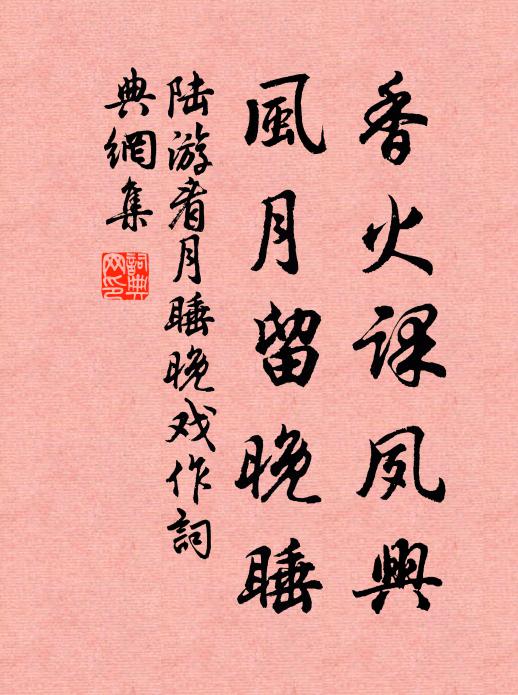 香火課夙興
風月留晚睡
陆游看月睡晚戏作詞
典網集
詞典
网印